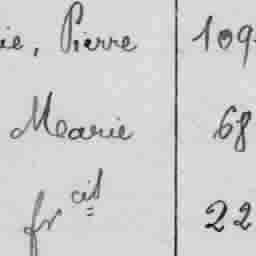 ie, Pierre 109
Marie 68
fr cis 22